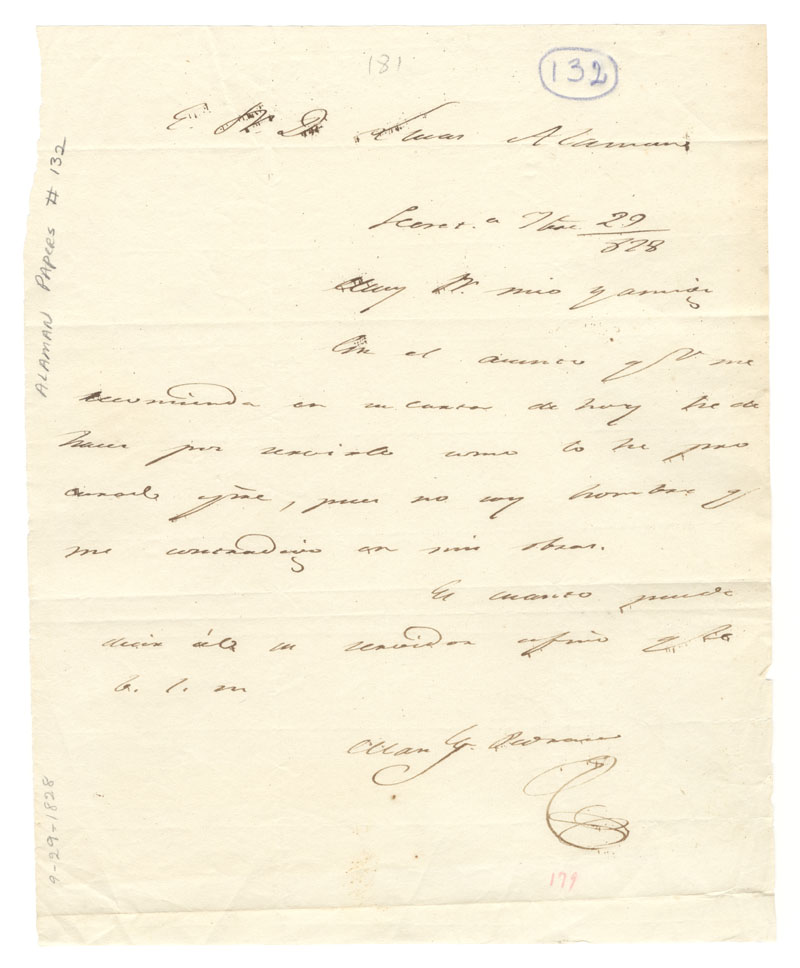 181
132
E. Sr. D. Lucas Alaman
Secret.a 7bre 29/828
Muy Sr. mio y amigo
En el asunto q V me
recomienda en su carta de hoy he de
hacer por servirle como lo he pro
curado spre, pues no soy hombre q
me contradigo en mis obras.
Es cuanto puede
decir á V. su servidor afmo q ss
b. s. m
Man G. Pedraza
179
ALAMAN PAPERS # 132
9-29-1828